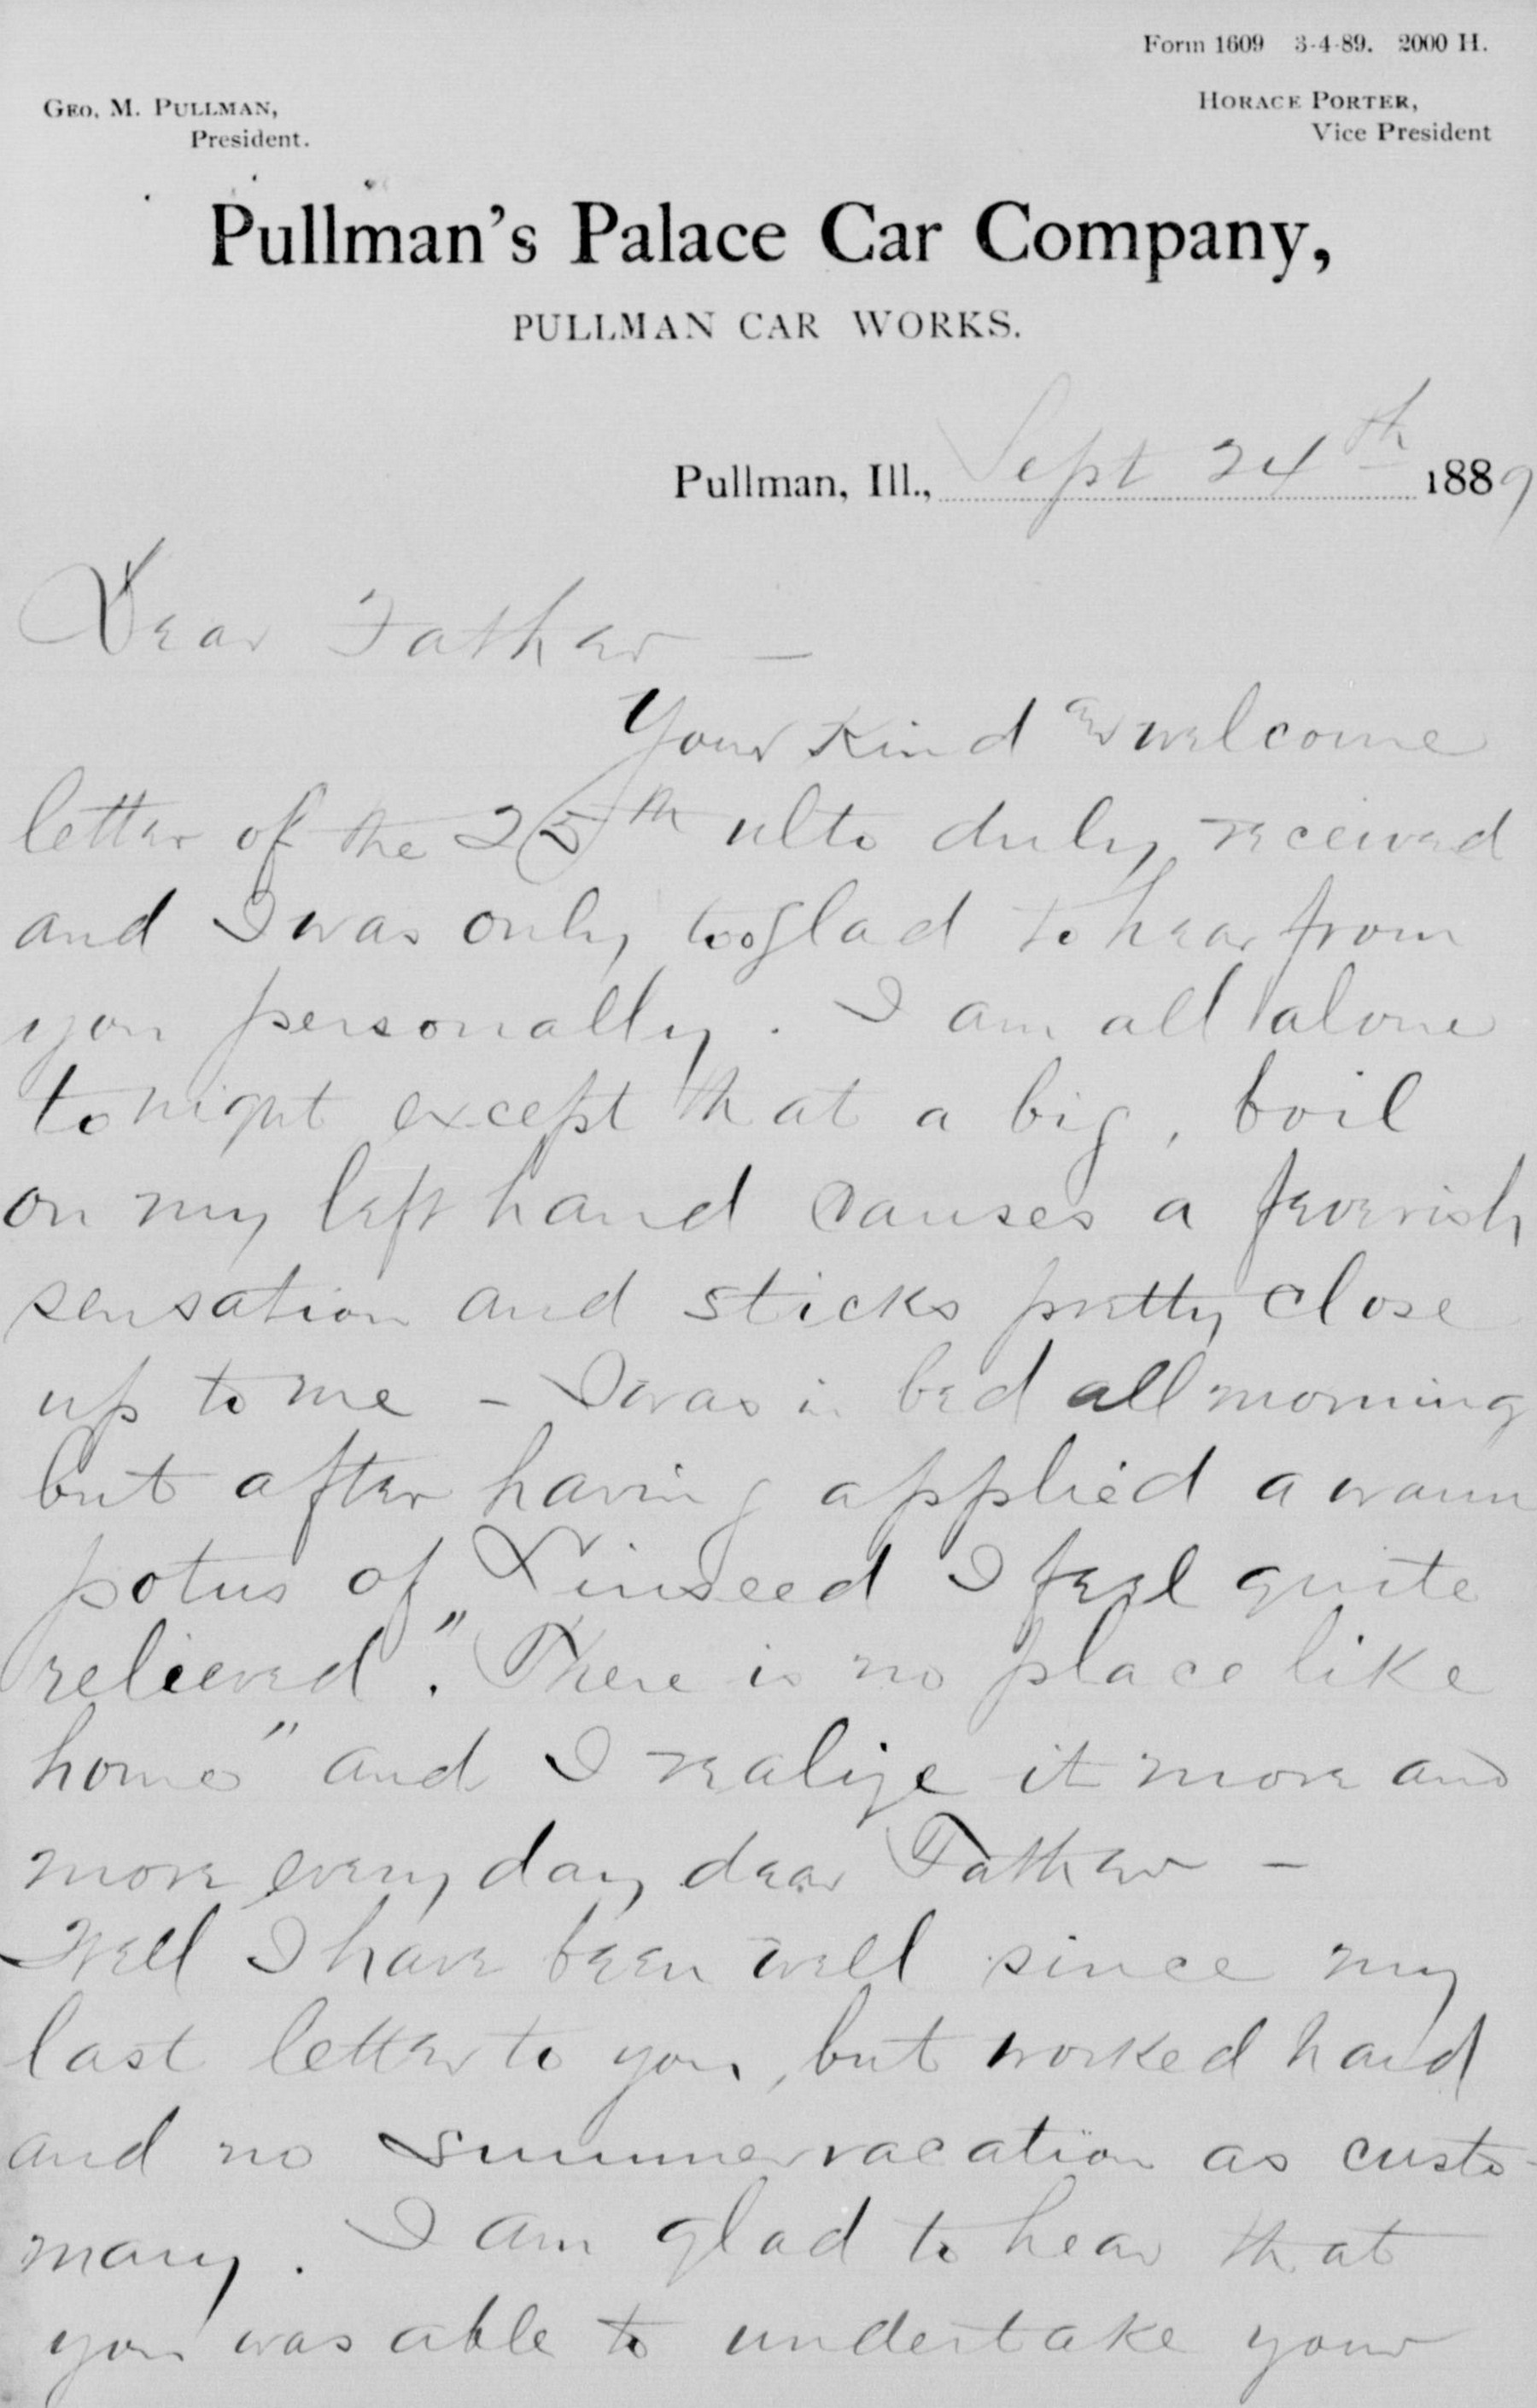 Form 1609 3-4-89. 2000 H.
GEO. M. PULLMAN,
President.
HORACE PORTER,
Vice President
Pullman's Palace Car Company,
PULLMAN CAR WORKS.
Pullman, Ill., Sept 24th 1889
Dear Father —
Your Kind and welcome
letter of the 25th ulto duly received
and I was only too glad to hear from
you personally. I am all alone
to night except that a big, boil
on my left hand causes a feverish
sensation and sticks pretty close
up to me - I was in bed all morning
but after having applied a warm
potus of Linseed I feel quite
relieved. "There is no place like
home" and I realize it more and
more every day dear Father -
Well I have been well since my
last letter to you, but worked hard
and no summer vacation as custo-
mary. I am glad to hear that
you was able to undertake your